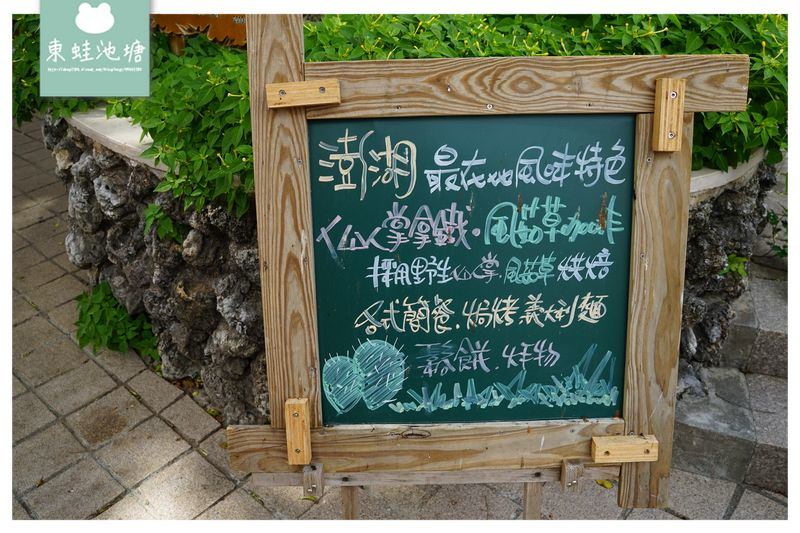 東蛙池塘
澎湖 最在地風味特色
仙人掌拿鐵.風茹草咖啡
採用野生仙人掌.風茹草烘焙
各式簡餐.焗烤義大利麵
鬆餅.炸物